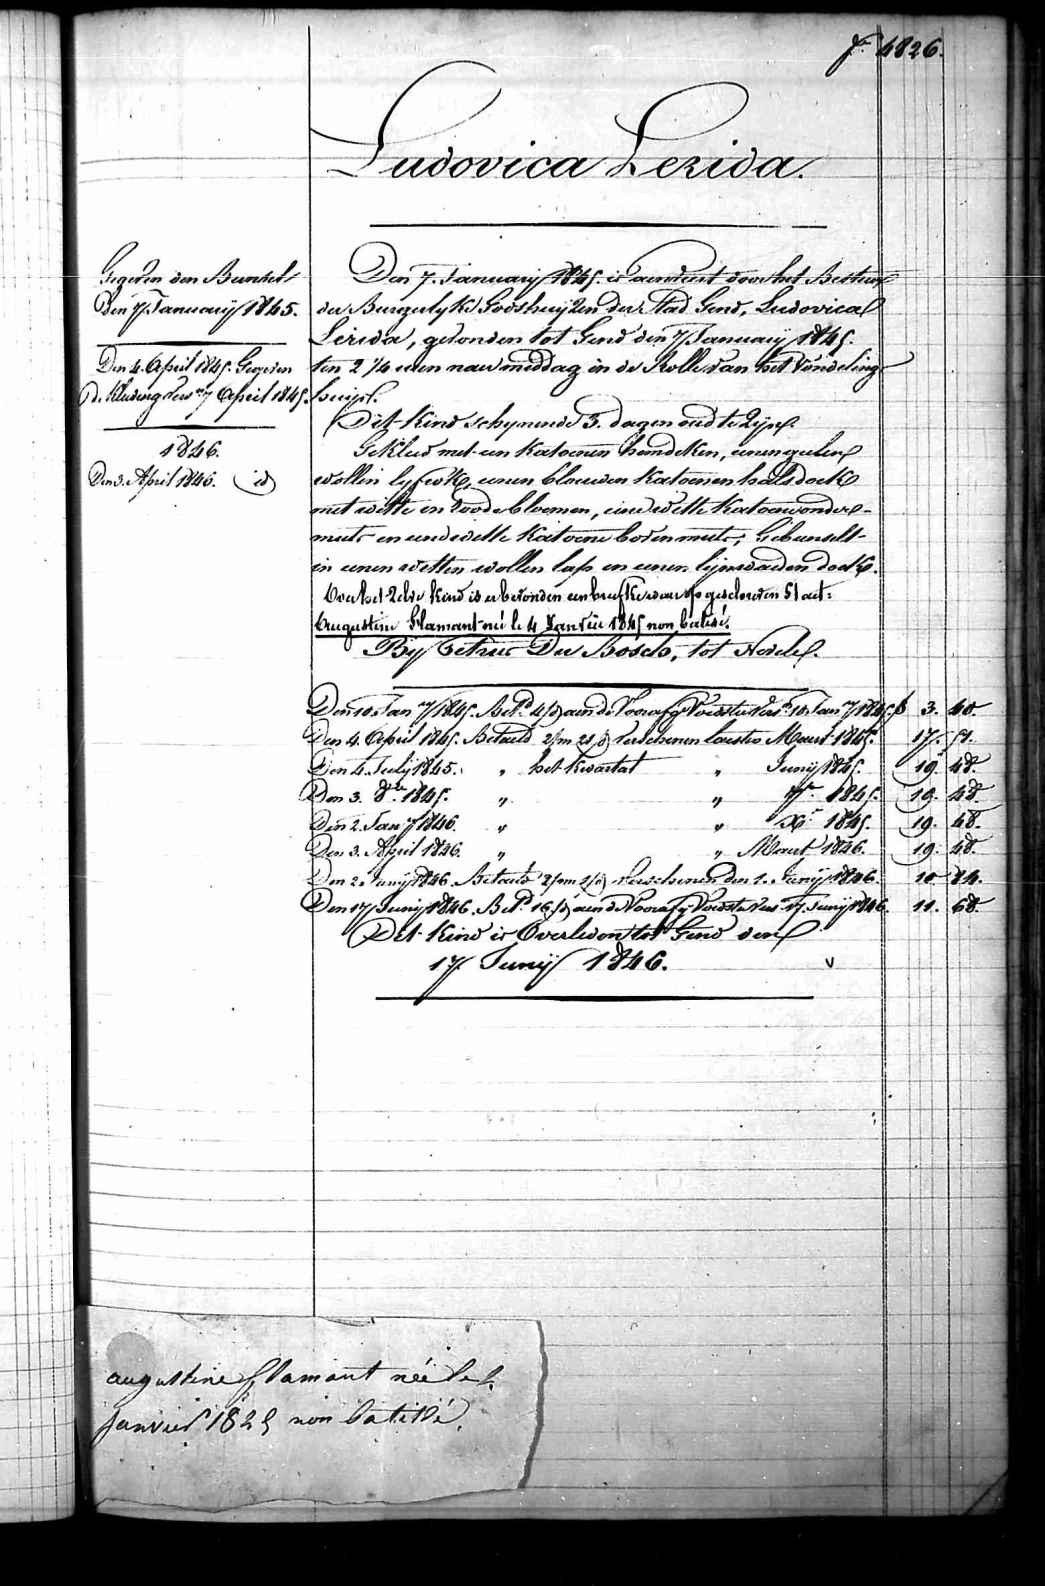 f.º 4826.
Ludovica Lerida.
Gegeven den Bunsel
den 7 January 1845.
Den 4. April 1845. Gegeven
de Kleeding Vers. 7 April 1845.
1846.
Den 3. April 1846. id
Den 7. January 1845. is aenveert door het Bestuer
der Burgelyke Godshuyzen der Stad Gend, Ludovica
Lerida, gevonden tot Gend den 7 January 1845.
ten 2 1/4 uren naermiddag in de Rolle van het Vondeling
huys.
Dit kind schynende 3. dagen oud te zyn.
Gekleed met een katoenen hemdeken, eenen geelen
wollen lyfrok, eenen blauwen katoenen halsdoek
met witte en roode bloemen, eene witte katoene onder-
muts en eene witte katoene bovenmuts; Gebunselt
in eenen witten wollen lap en eenen lynwaeden doek.
Over het zelve kind is er bevonden een briefke waer op geschreven staet:
Augustine flamant né le 4 Janvier 1845 non batisé.
By Petrus De Bosch, tot Nevele.
Den 10. Jan.y 1845. Bet.d 4/d aen de Voorafg. Voedster vers. 10. Jan.y 1845. f 3. 40.
Den 4. April 1845. Betaeld 2/m 21/d verschenen laesten Maert 1845. 17. 51.
Den 4. July 1845. " het kwartael " Juny 1845. 19. 48.
Den 3. 8.bre 1845. " " 7.r 1845. 19. 48.
Den 2. Jan.y 1846. " " X.r 1845. 19. 48.
Den 3. April 1846. " " Maert 1846. 19. 48.
Den 2. Juny 1846. Betaeld 2/m 1/d verschenen den 1. Juny 1846. 10 84.
Den 17 Juny 1846. Bet.d 16/d aen de Voorafg. Voedster vers. 17. Juny 1846. 11. 68.
Dit kind is Overleden tot Gend den
17. Juny 1846. v
augustine flamant née le 4
janvier 1845 non batisé.